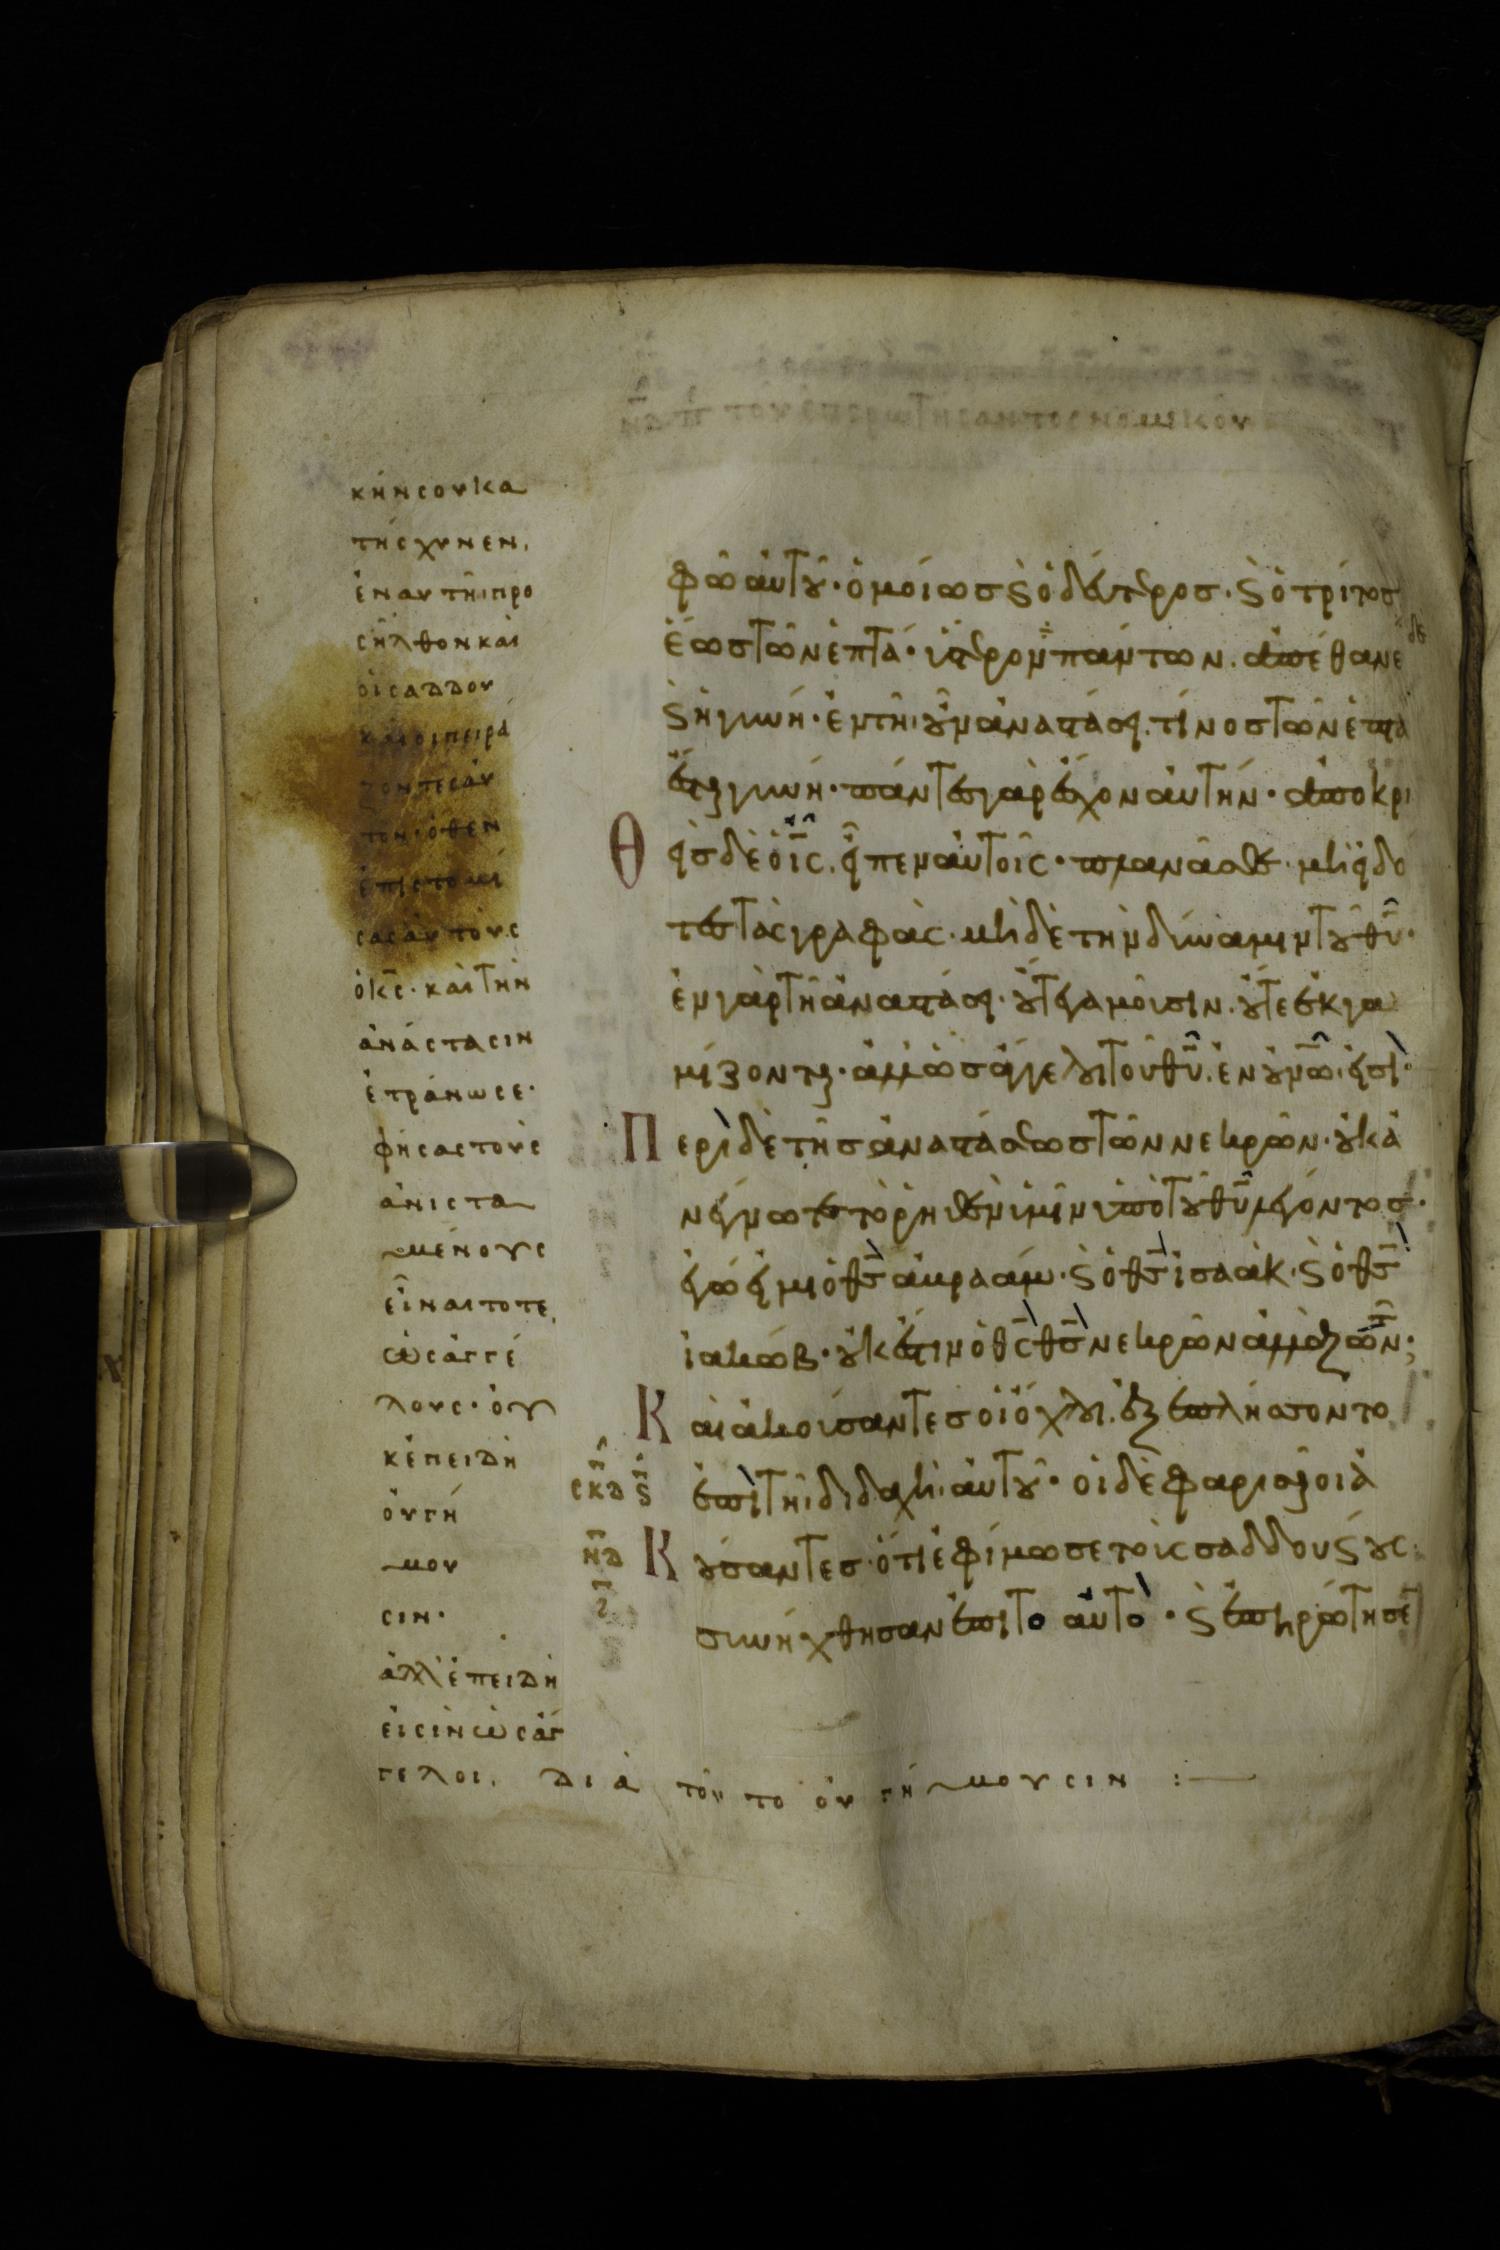 κήνσου κα
τήσχυνεν,
ἐν αυτῆι προ
σῆλθον καὶ
οἱ σαδδου
καῖοι πειρά
ζοντες ἀυ
τόν· ὅθεν
ἐπιστομί
σας ἀυτοὺς
ὁ κ̅ς̅· καὶ τὴν
ἀνάστασιν
ἐτράνωσε·
φήσας τοὺς
ἀνιστα
μένους
εἶναι τότε,
ὡς ἀγγέ
λους· οὐ
κ ἐπειδὴ
οὐ γή
μου
σιν·
ἀλλ' ἐπειδὴ
εἰσὶν ὡς ἄγ
γελοι, διὰ τοῦτο οὐ γήμουσιν :—
φῶ ἀυτοῦ· ὁμοίωσ ϗ ὁ δεύτεροσ· ϗ ὁ τρίτοσ
ἕωσ τῶν ἑπτά· ὕστερον πάντων. ἀπέθανε
ϗ ἡ γυνή· ἐν τῆι οὖν ἀναστάσει. τίνοσ τῶν ἑπτὰ
ἔσται γυνή· πάντεσ γὰρ ἔσχον ἀυτήν· ἀποκρι
Θ εὶσ δὲ ὁ ι̅ς̅. εἶπεν ἀυτοῖς· πλανᾶσθε· μὴ εἰδό
τεσ τὰς γραφὰς· μὴ δὲ τὴν δύναμιν τοῦ θ̅υ̅·
ἐν γὰρ τῆ ἀναστάσει· οὔτε γαμοῦσιν. οὔτε ἐκγα
μίζονται· ἀλλ' ὡσ ἄγγελοι τοῦ θ̅υ̅. ἐν οὐ̅ν̅ω̅. εἰσὶ·
Π ερὶ δὲ τῆσ ἀναστάσεωσ τῶν νεκρῶν· οὐκ ἀ
νέγνωτε τὸ ῥηθὲν ὑμῖν ὑπὸ τοῦ θ̅υ̅ λέγοντοσ·
ἐγώ εἰμι ὁ θ̅σ̅ ἀβραάμ· ϗ ὁ θ̅σ̅ ἰσαάκ· ϗ ὁ θ̅σ̅
ἰακώβ· οὐκ ἔστιν ὁ θ̅ς̅ θ̅σ̅ νεκρῶν ἀλλὰ ζώντων·
Κ αὶ ἀκούσαντεσ οἱ ὄχλοι. ἐξεπλήσσοντο
σκδ ϛ ἐπὶ τῆι διδαχῆι ἀυτοῦ· οἱ δὲ φαρισαῖοι ἀ
Κ ούσαντεσ· ὅτι ἐφίμωσε τοὺς σαδδουκαίους
συνήχθησαν ἐπὶ το ἀυτὸ· ϗ ἐπηρώτησε